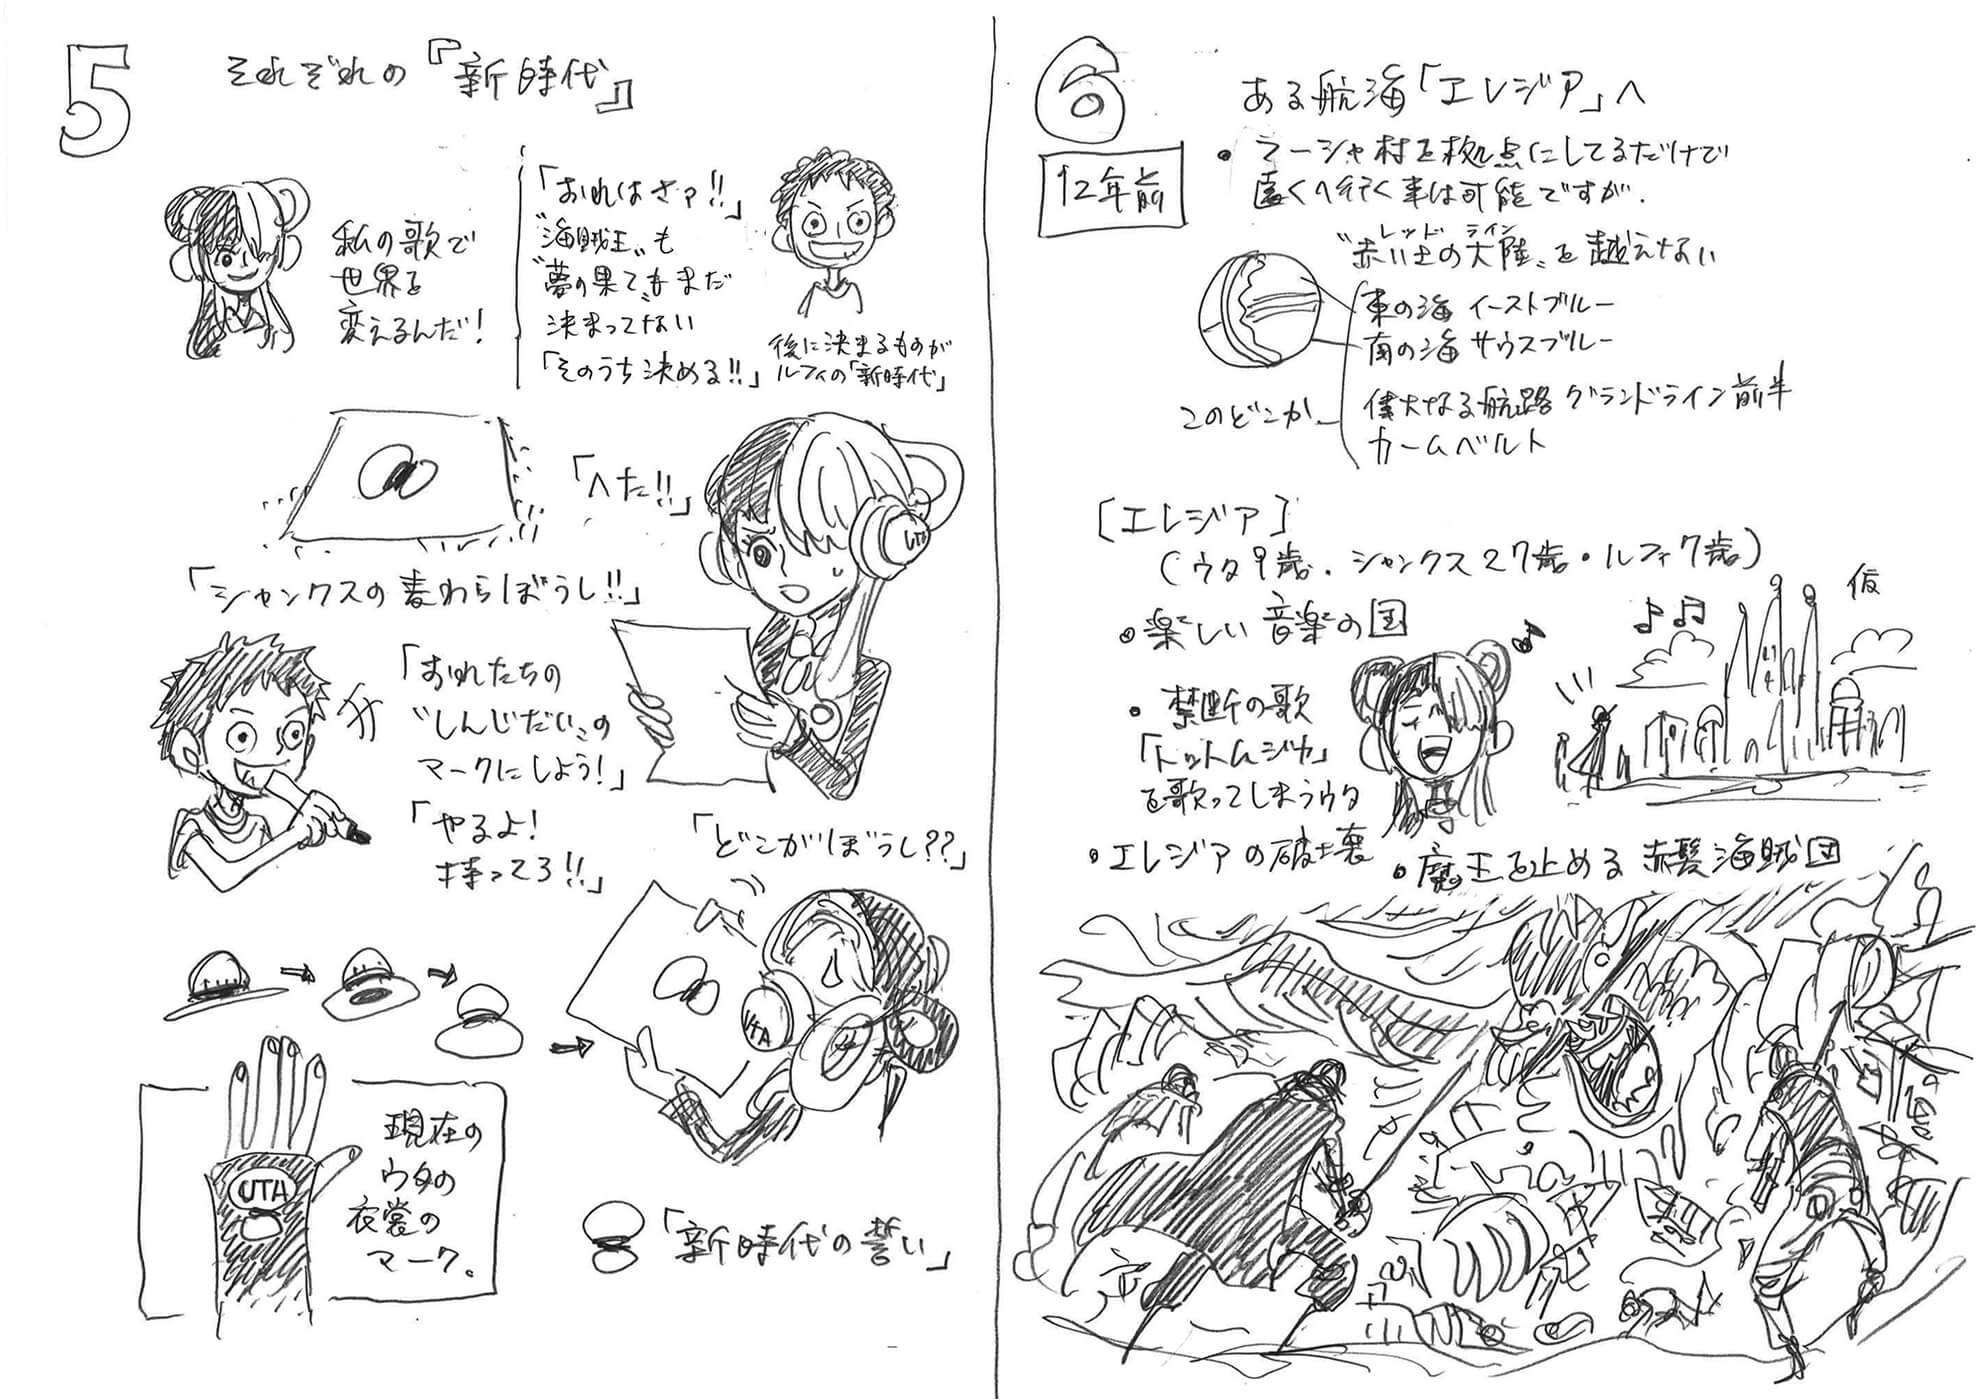 5
それぞれの『新時代』
私の歌で
世界を
変えるんだ!
「おれはさァ!!」
"海賊王"も
"夢の果て"もまだ
決まってない
「そのうち決める!!」
後に決まるものが
ルフィの「新時代」
「へた!!」
UTA
「シャンクスの麦わらぼうし!!」
「おれたちの
"しんじだい"の
マークにしよう!」
「やるよ!
持ってろ!!」
「どこがぼうし??」
UTA
現在の
ウタの
衣裳の
マーク。
UTA
「新時代の誓い」
6
ある航海「エレジア」へ
12年前
・フーシャ村を拠点にしてるだけで
遠くへ行く事は可能ですが.
レッド ライン
"赤い土の大陸"を越えない
東の海 イーストブルー
南の海 サウスブルー
偉大なる航路 グランドライン前半
カームベルト
このどこか
[エレジア]
(ウタ9歳.シャンクス27歳・ルフィ7歳)
仮
・楽しい音楽の国
・禁断の歌
「トットムジカ」
を歌ってしまうウタ
・エレジアの破壊
・魔王を止める赤髪海賊団